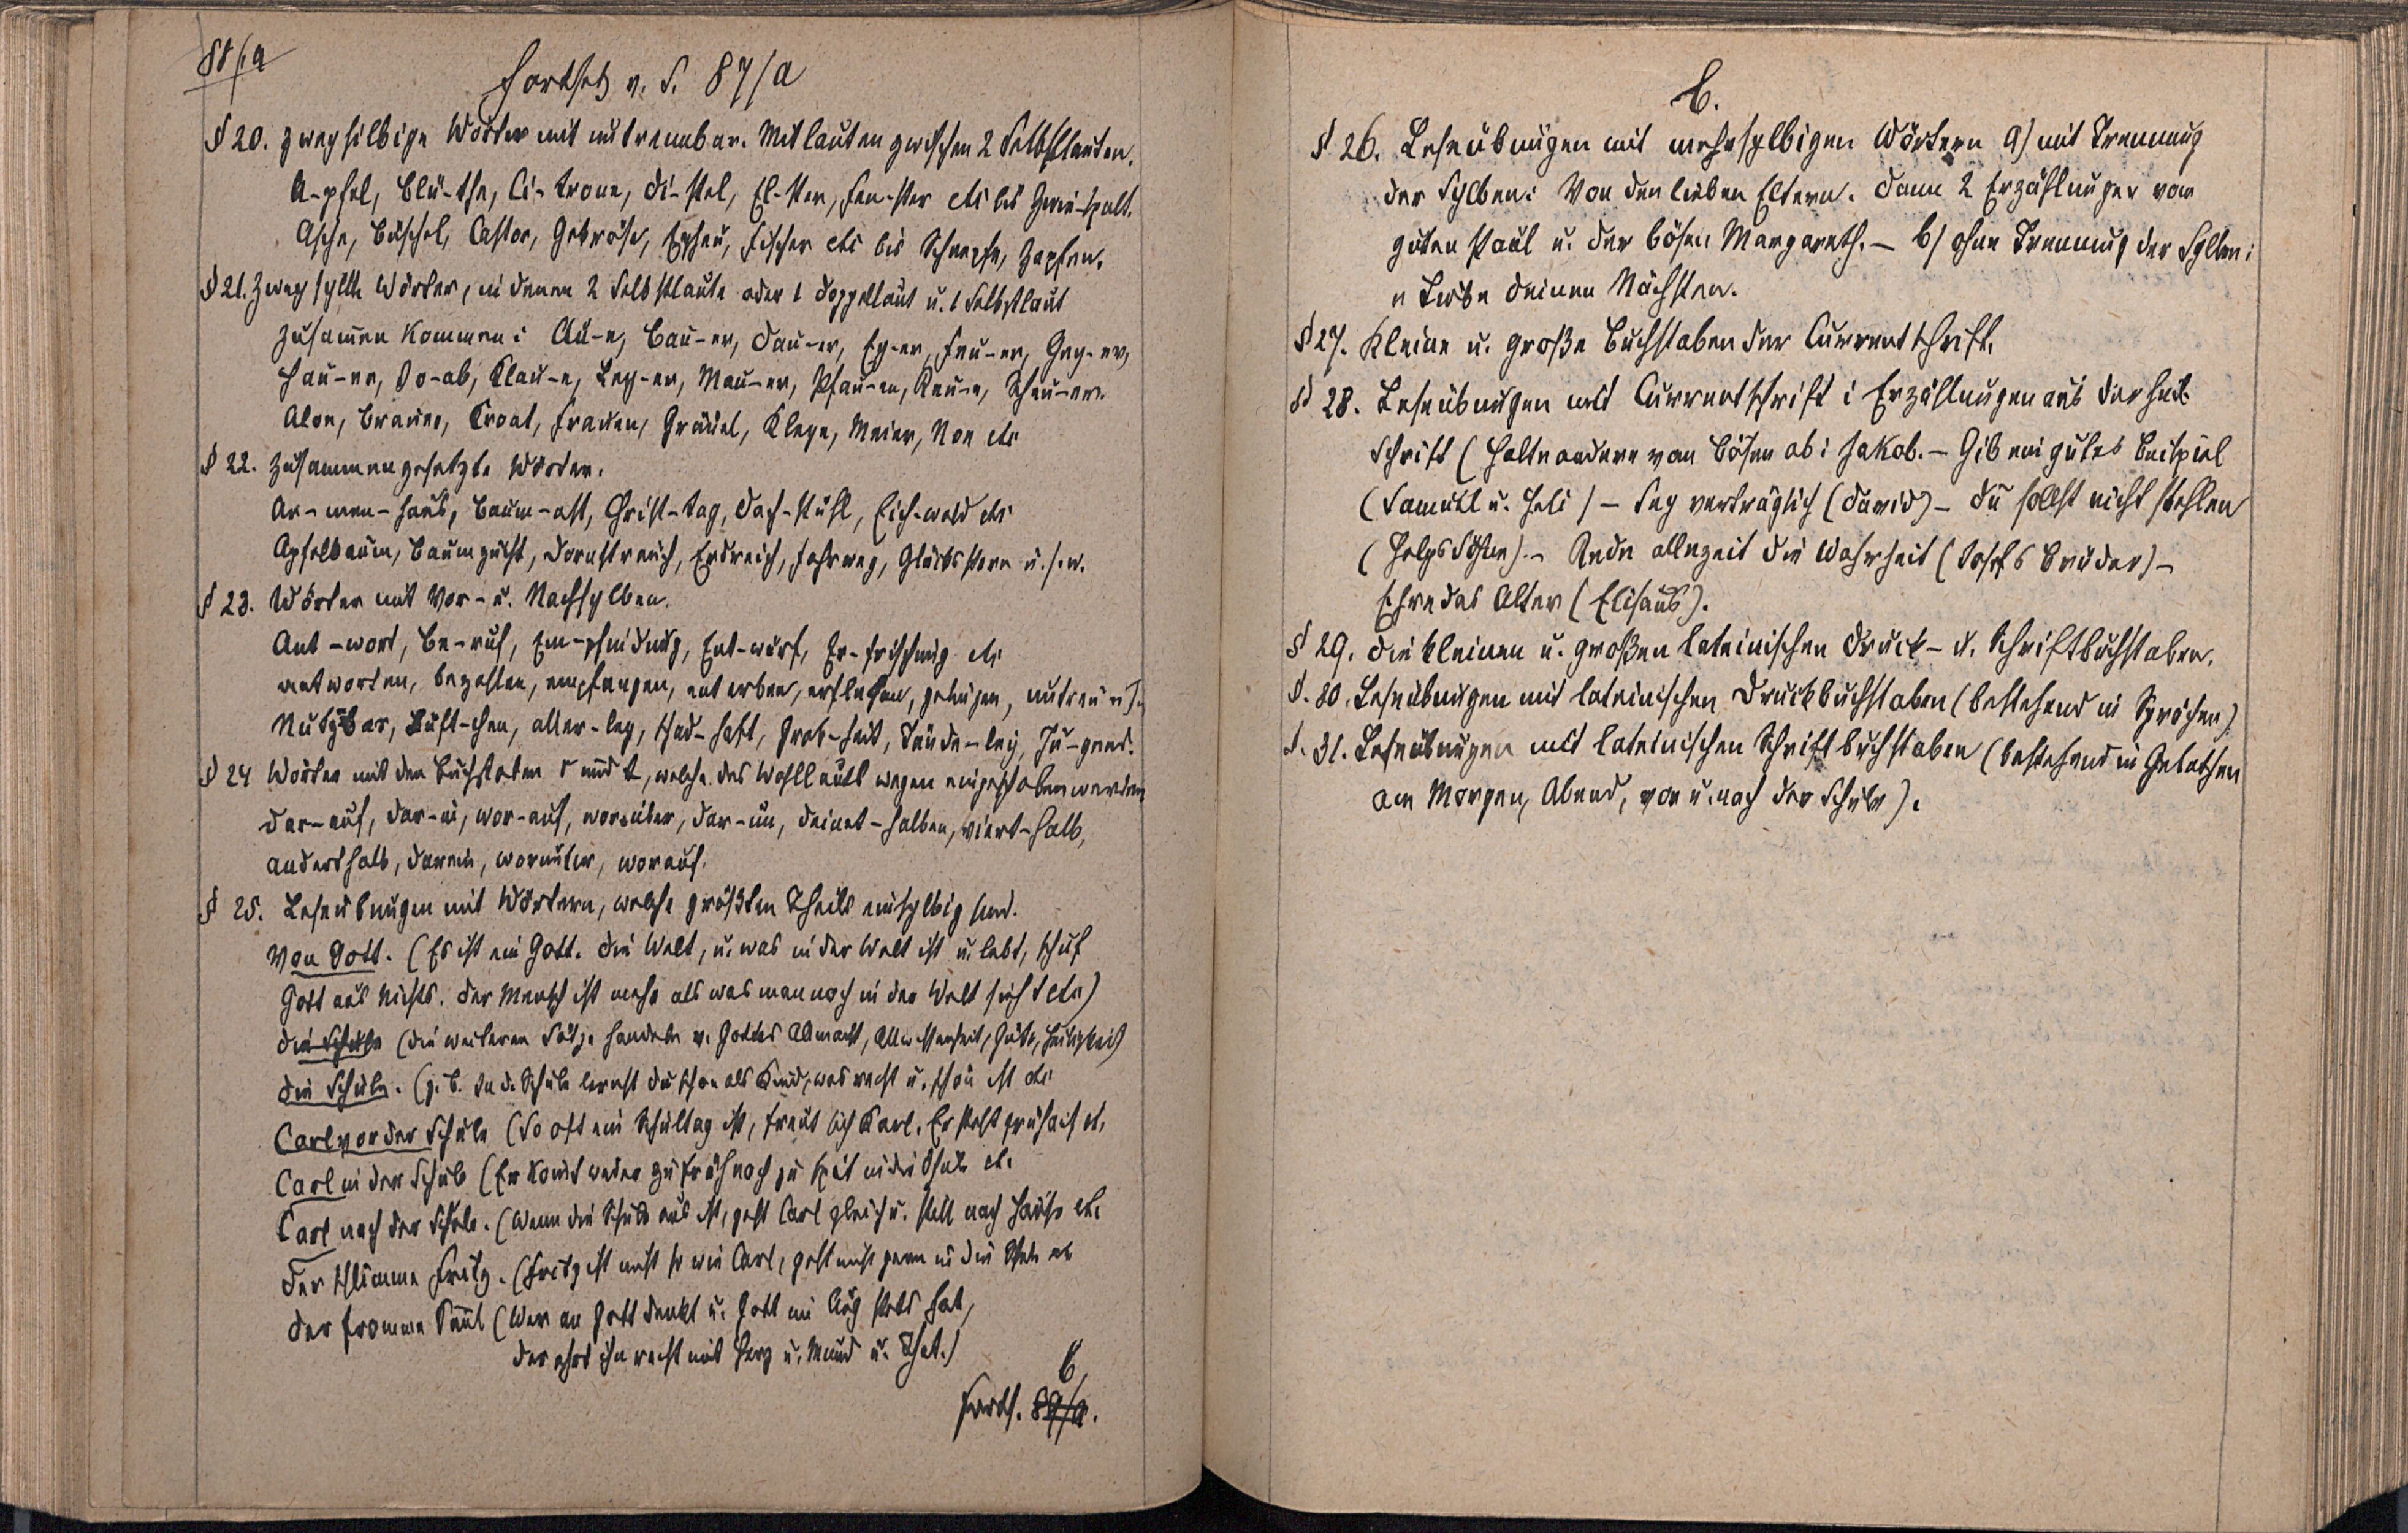 88/a
Fortsetz v. S. 87/a
§ 20. Zweysilbige Wörter mit untrennbar. Mitlauten zwischen 2 Selbstlauten.
A-pfel, Blü-the, Ci-trone, Di-stel, El-ster, Fen-ster etc bis Zwie-spalt.
Asche, Büschel, Castor, Gekröse, Epheu, Fischer etc bis Schnepfe, Zapfen.
§ 21. Zweysylbe Wörter, in denen 2 Selbstlaute oder 1 Doppellaut u. 1 Selbstlaut
zusam̄en kommen: Au-e, Bau-er, Dau-er, Ey-er, Feu-er, Gey-er,
Hau-er, Jo-ab, Klau-e, Ley-er, Mau-er, Pfau-en, Reu-e, Scheu-er.
Aloe, Brauer, Croat, Frauen, Gräuel, Kleye, Meier, Noe etc
§ 22. Zusammengesetzte Wörter.
Ar-men-haus, Baum-ast, Christ-tag, Dach-stuhl, Eich-wald etc
Apfelbaum, Baumzucht, Dornstrauch, Erdreich, Fahrweg, Glücksstern u.s.w.
§ 23. Wörter mit Vor- u. Nachsylben.
Ant-wort, Be-ruf, Em-pfindung, Ent-wurf, Er-frischung etc
antworten, bezahlen, empfangen, enterben, erflehen,
Nutzbar, Lüft-chen, aller-ley, schad-haft, Grob-heit, Tände-ley, Ju-gend.
§ 24 Wörter mit den Buchstaben r und t, welche des Wohllauts wegen eingeschoben werden
dar-auf, dar-in, wor-auf, worüber, dar-um, deinet-halben, viert-halb,
anderthalb, darein, worunter, worauf.
§ 25. Leseübungen mit Wörtern, welche größten Theils einsylbig sind.
Von Gott. (Es ist ein Gott. Die Welt, u. was in der Welt ist u. lebt, schuf
Gott aus Nichts. Der Mensch ist mehr als was man noch in der Welt sieht etc)
Die Schule (die weiteren Sätze handeln v. Gottes Allmacht, Allwissenheit, Güte, Heiligkeit)
Die Schule. (z. B. In d. Schule lernst du schon als Kind, was recht u. schön ist etc
Carl vor der Schule (So oft ein Schultag ist, freut sich Karl. Er steht früh auf et.
Carl in der Schule (Er komt weder zu früh noch zu spät in die Schule et.
Carl nach der Schule. (Wenn die Schule aus ist, geht Carl gleich u. still nach Hause et.
Der schlimme Fritz. (Fritz ist nicht so wie Carl, geht nicht gern in die Schule et
Der fromme Paul (Wer an Gott denkt u. Gott im Aug stets hat,
der ehrt ihn recht mit Herz u. Mund u. That.)
b
Forts. 89/a.
b.
§ 26. Leseübungen mit mehrsylbigen Wörtern a) mit Trennung
der Sylben: Von den lieben Eltern. Dann 2 Erzählungen vom
guten Paul u. der bösen Margareth. – b) ohne Trennung der Sylben:
Liebe deinen Nächsten.
§ 27. Kleine u. große Buchstaben der Currentschrift.
§ 28. Leseübungen mit Currentschrift: Erzählungen aus der heil.
Schrift (Halte andere vom Bösen ab: Jakob. – Gib ein gutes Beispiel
(Samuel u. Heli) – Sey verträglich (David) – Du sollst nicht stehlen
(Helys Söhne). – Rede allezeit die Wahrheit (Josefs Brüder) –
Ehre das Alter (Elisäus).
§ 29. Die kleinen u. großen lateinischen Druck- u. Schriftbuchstaben.
§. 30. Leseübungen mit lateinischen Druckbuchstaben (bestehend in Sprüchen)
§. 31. Leseübungen mit lateinischen Schriftbuchstaben (bestehend in Gebethen
am Morgen, Abend, vor u. nach der Schule).